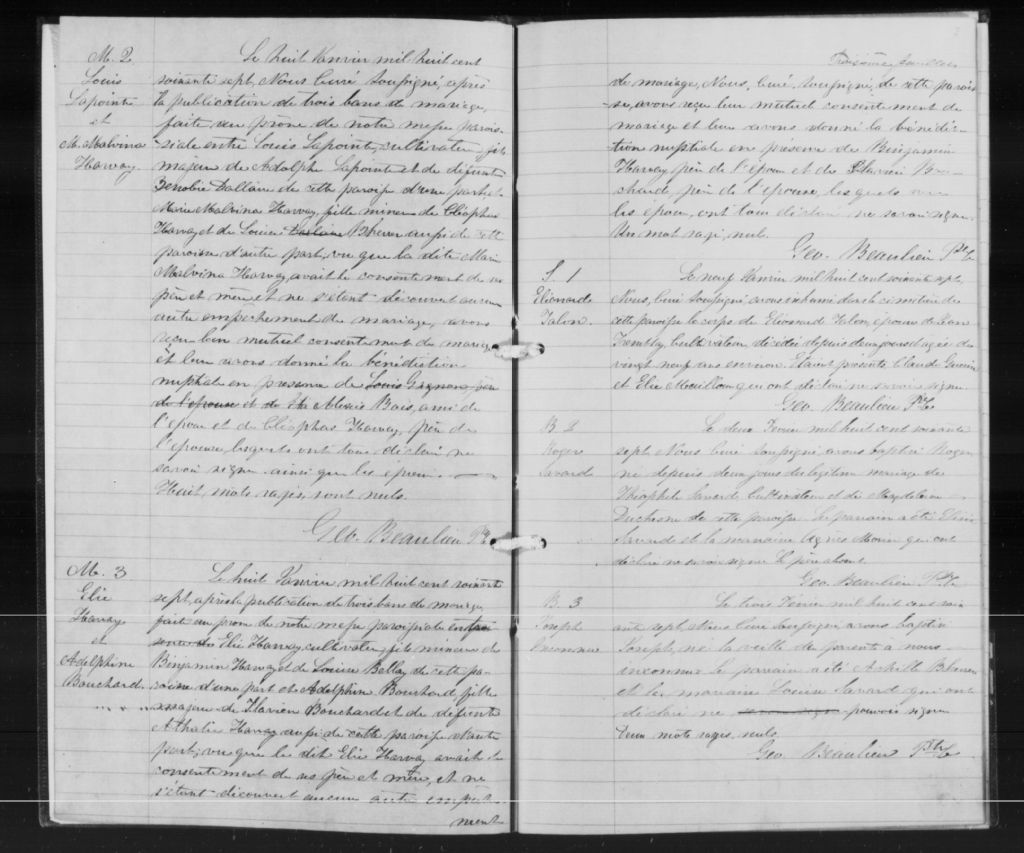 M. 2
Louis
Lapointe
et
M. Malvina
Harvay
Le huit Janvier mil huit cent
soixante sept, Nous Curé soussigné, après
la publication de trois bans de mariage,
faite au prône de notre messe parois-
siale entre Louis Lapointe, cultivateur fils
majeur de Adolphe Lapointe et de défunte
Zenobie Dallaire de cette paroisse d'une part et
Marie Malvina Harvay, fille mineure de Cléophas
Harvay et de Louise Blurer aussi de cette
paroisse d'autre part, vu que la dite Marie
Malvina Harvay, avait le consentement de ses
père et mère et ne s'étant découvert aucun
autre empêchement de mariage, avons
reçu leur mutuel consentement de mariage
et leur avons donné la bénédiction
nuptiale en présence de Louis Gagnon, père
de l'epouse et de Alexis Bois, ami de
l'époux et de Cléophas Harvay, père de
l'epouse, lesquels ont tous déclaré ne
savoir signer ainsi que les époux.
Huit mots rayés sont nuls.
Geo. Beaulieu Ptre
M. 3
Elie
Harvay
et
Adelphine
Bouchard
Le huit Janvier mil huit cent soixante
sept, après la publication de trois bans de mariage
fait au prone de notre messe paroissiale
Elie Harvay, cultivateur, fils mineur de
Benjamin Harvay et de Louise Bellay de cette pa-
roisse d'une part et Adelphine Bouchard fille
majeure de Flavien Bouchard et de défunte
Athalie Harvay aussi de cette paroisse d'autre
part, vu que le dit Elie Harvay avait le
consentement de ses père et mère, et ne
s'étant découvert aucun autre empêche
ment
Troisième feuillet
de mariage, Nous, Curé, soussigné, de cette parois
-se, avons reçu leur mutuel consentement de
mariage et leur avons donné la bénédic-
tion nuptiale en présence de Benjamin
Harvay père de l'époux et de Flavien Bou-
chard, père de l'epouse, lesquels
les époux, ont tous déclaré ne savoir signer.
Un mot rayé, nul.
Geo. Beaulieu Ptre
S. 1
Eléonarde
Talon.
Le neuf Janvier mil huit cent soixante sept,
Nous, Curé soussigné, avons inhumé dans le cimetière de
cette paroisse le corps de Eléonard Talon, épouse de Jean
Trembly, Cultivateur décédée depuis deux jours agée de
vingt neuf ans environ. Etaient présents Claude Guérin
et Elie Mouillon qui ont déclaré ne savoir signer.
Geo. Beaulieu Ptre
B 2
Roger
Savard
Le deux Fevrier mil huit cent soixante
sept, Nous Curé soussigné, avons baptisé Roger
né depuis deux jours du légitime mariage de
Théophile Savard, Cultivateur et de Magdeleine
Duchesne de cette paroisse. Le parrain a été
Savard et la marraine Agnès Morin qui ont
déclaré ne savoir signer. Le père absent.
Geo. Beaulieu Ptre
B. 3
Joseph
Inconnu
Le trois Février mil huit cent soix
ante sept, Nous Curé soussigné avons baptisé
Joseph, né la veille de parents à nous
inconnus. Le parrain a été Achille
et la marraine Louise Savard qui ont
déclaré ne savoir signer pouvoir signer
Deux mots rayés, nuls.
Geo. Beaulieu Ptre